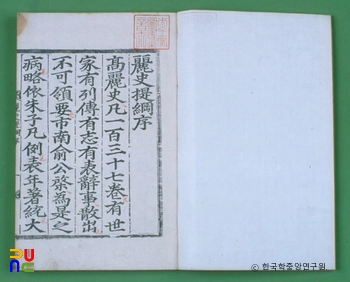 麗史提綱序
高麗史凡一百三十七卷有世
家有列傳有志有表辭事散出
不可領要市南俞公棨爲是之
病略依朱子凡例表年著統大
© 한국학중앙연구원